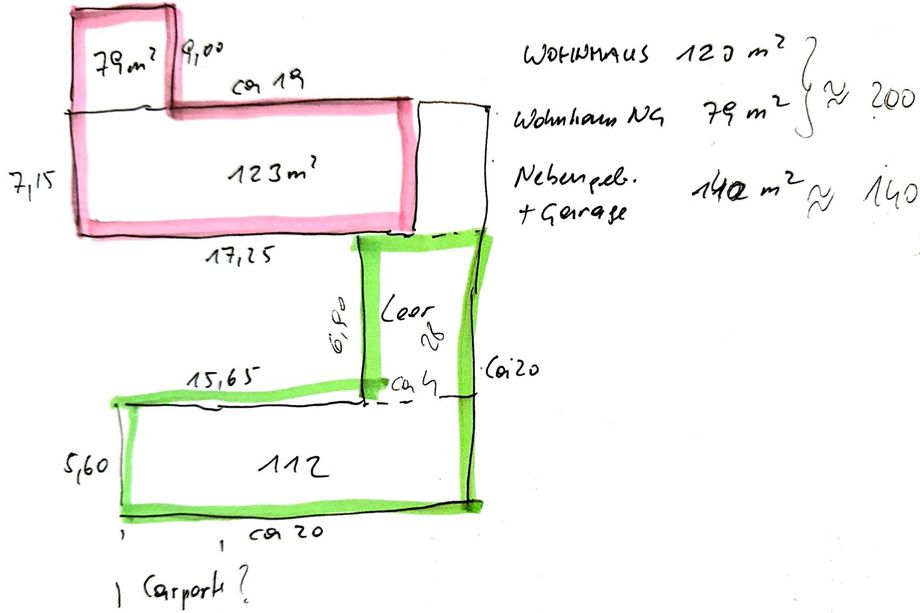 79m²
9,00
ca 19
7,15
123m²
17,25
WOHNHAUS 123 m²
Wohnhaus NG 79 m²
≈ 200
Nebengeb.
+ Garage
140 m² ≈ 140
6,90
Leer
28
ca 4
Ca 20
15,65
5,60
112
ca 20
Carport ?